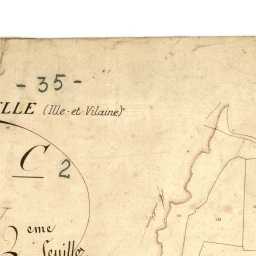 - 35 -
ELLE (Ille-et-Vilaine)
C 2
2eme feuille